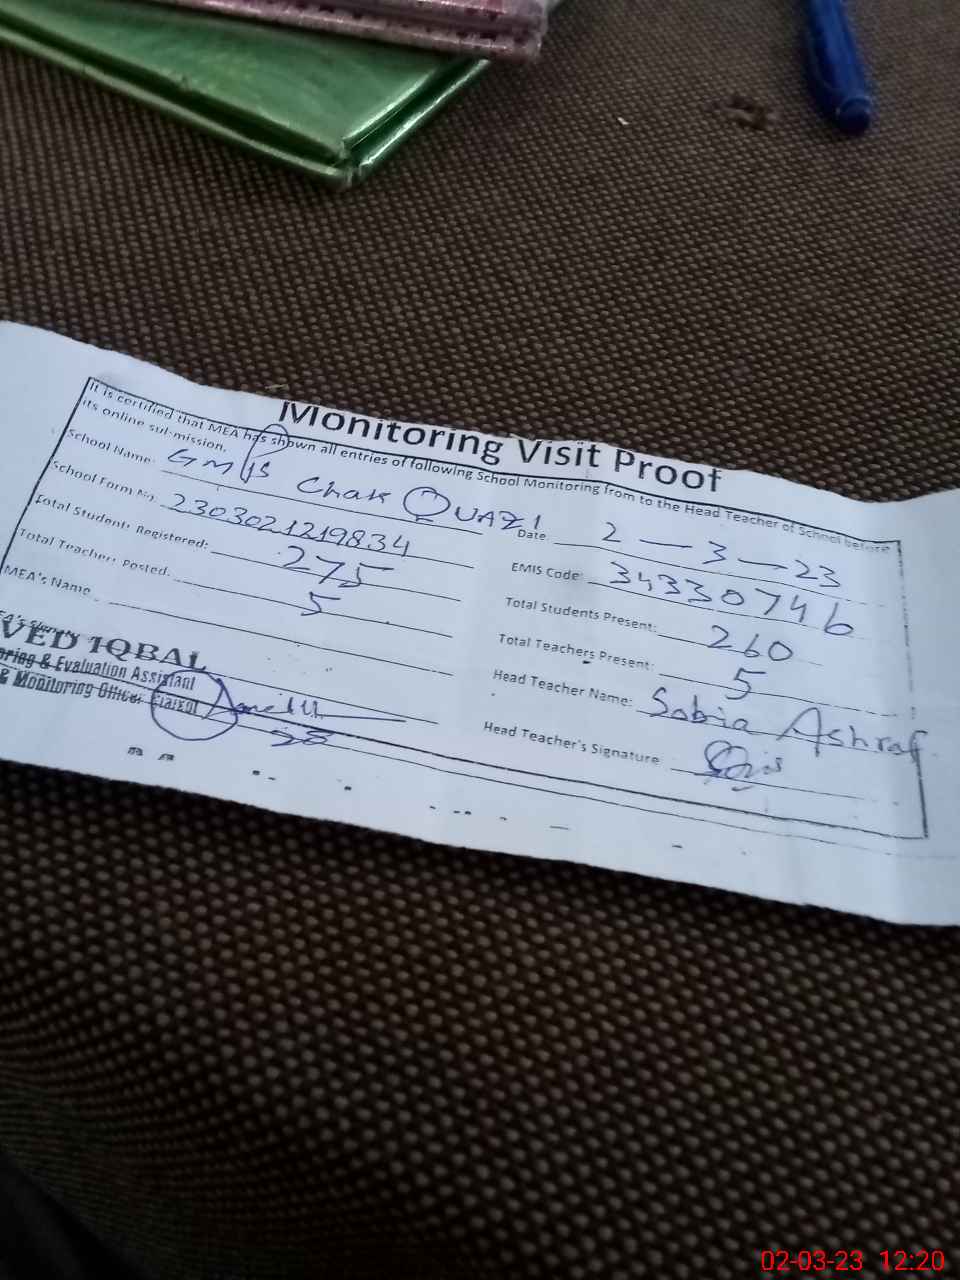 Monitoring Visit Proof
It is certified that MEA has shown all entries of following School Monitoring from to the Head Teacher of School before
its online sul-mission.
School Name: GMPS Chak QUAZI
Date 2 - 3 - 23
School Form No. 2303021219834
EMIS Code: 34330746
Total Student: Registered: 275
Total Students Present: 260
Total Teachers Posted: 5
Total Teachers Present: 5
MEA's Name
Head Teacher Name: Sobia Ashraf
VED IQBAL
oring & Evaluation Assistant
& Monitoring Officer
Head Teacher's Signature
02-03-23 12:20